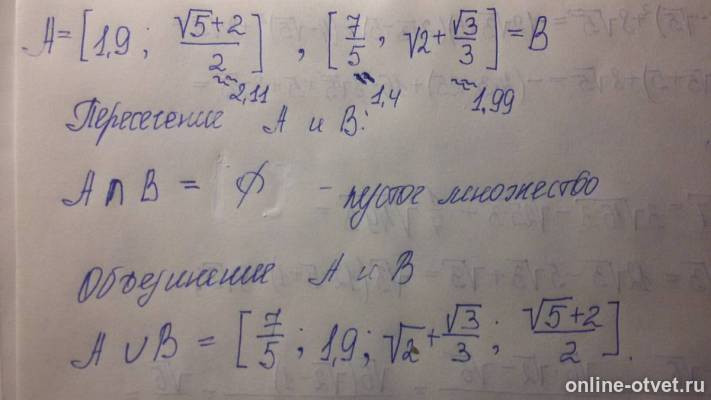 A = [1,9 ; (√5+2)/2] , [7/5 ; √2 + √3/3] = B
≈ 2,11 ≈ 1,4 ≈ 1,99
Пересечение A и B:
A ∩ B = ∅ – пустое множество
Объединение A и B
A ∪ B = [7/5 ; 1,9 ; √2 + √3/3 ; (√5+2)/2].
online-otvet.ru